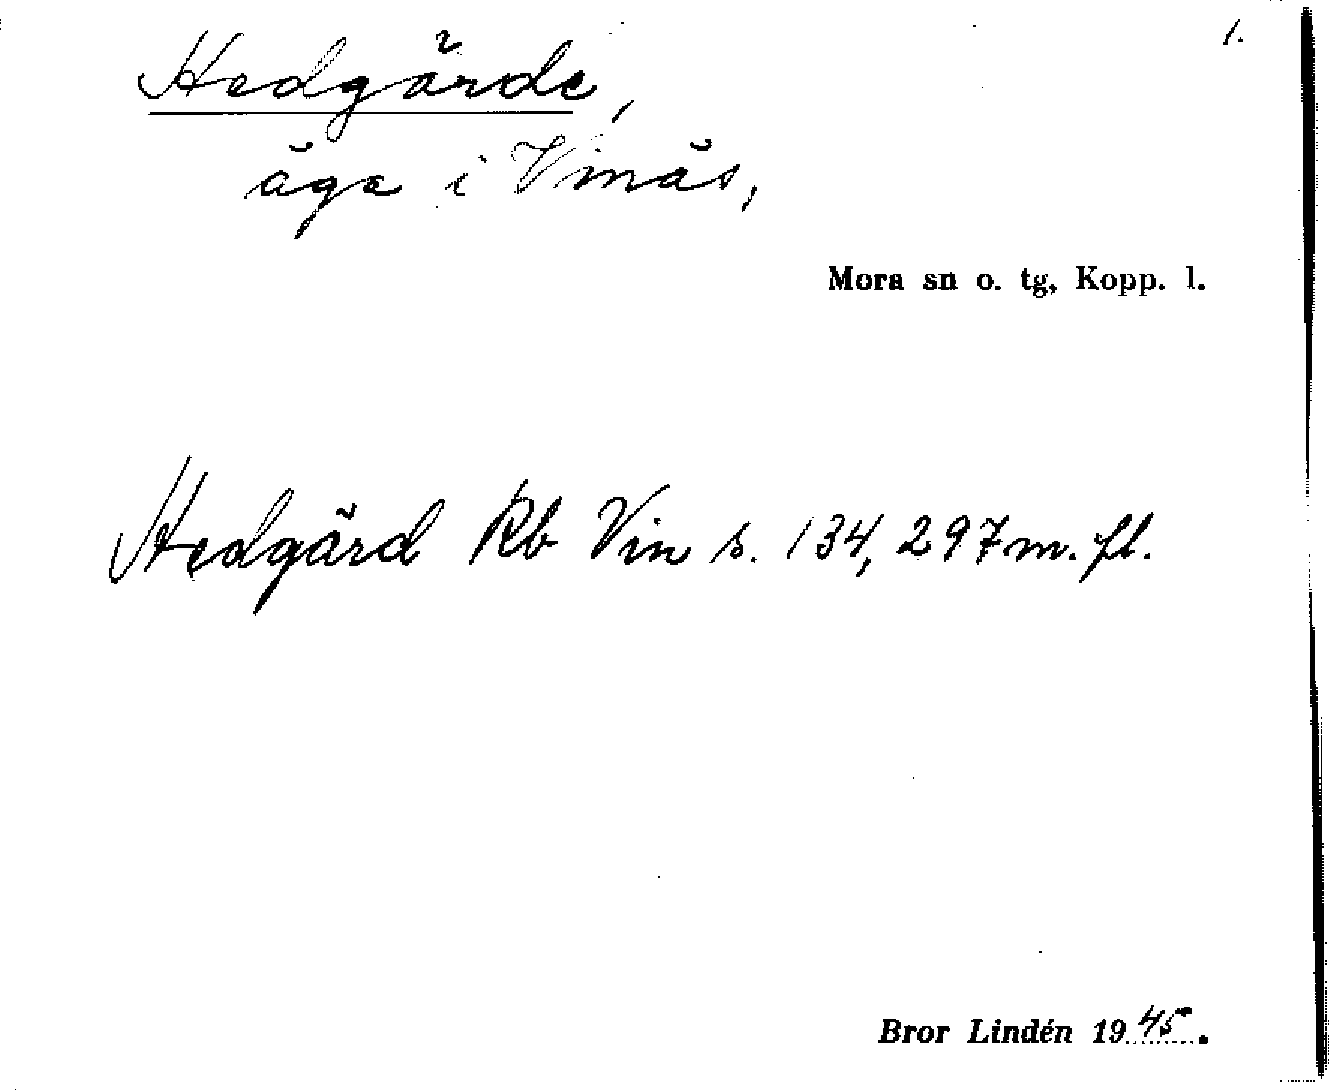 1.
Hedgärde,
äga i Vinäs,
Mora sn o. tg, Kopp. l.
Hedgärd Rb Vin s. 134, 297 m. fl.
Bror Lindén 1945.